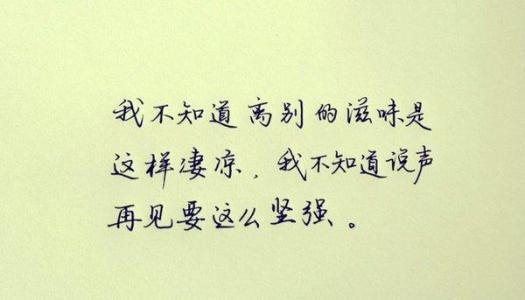 我不知道离别的滋味是
这样凄凉，我不知道说声
再见要这么坚强。